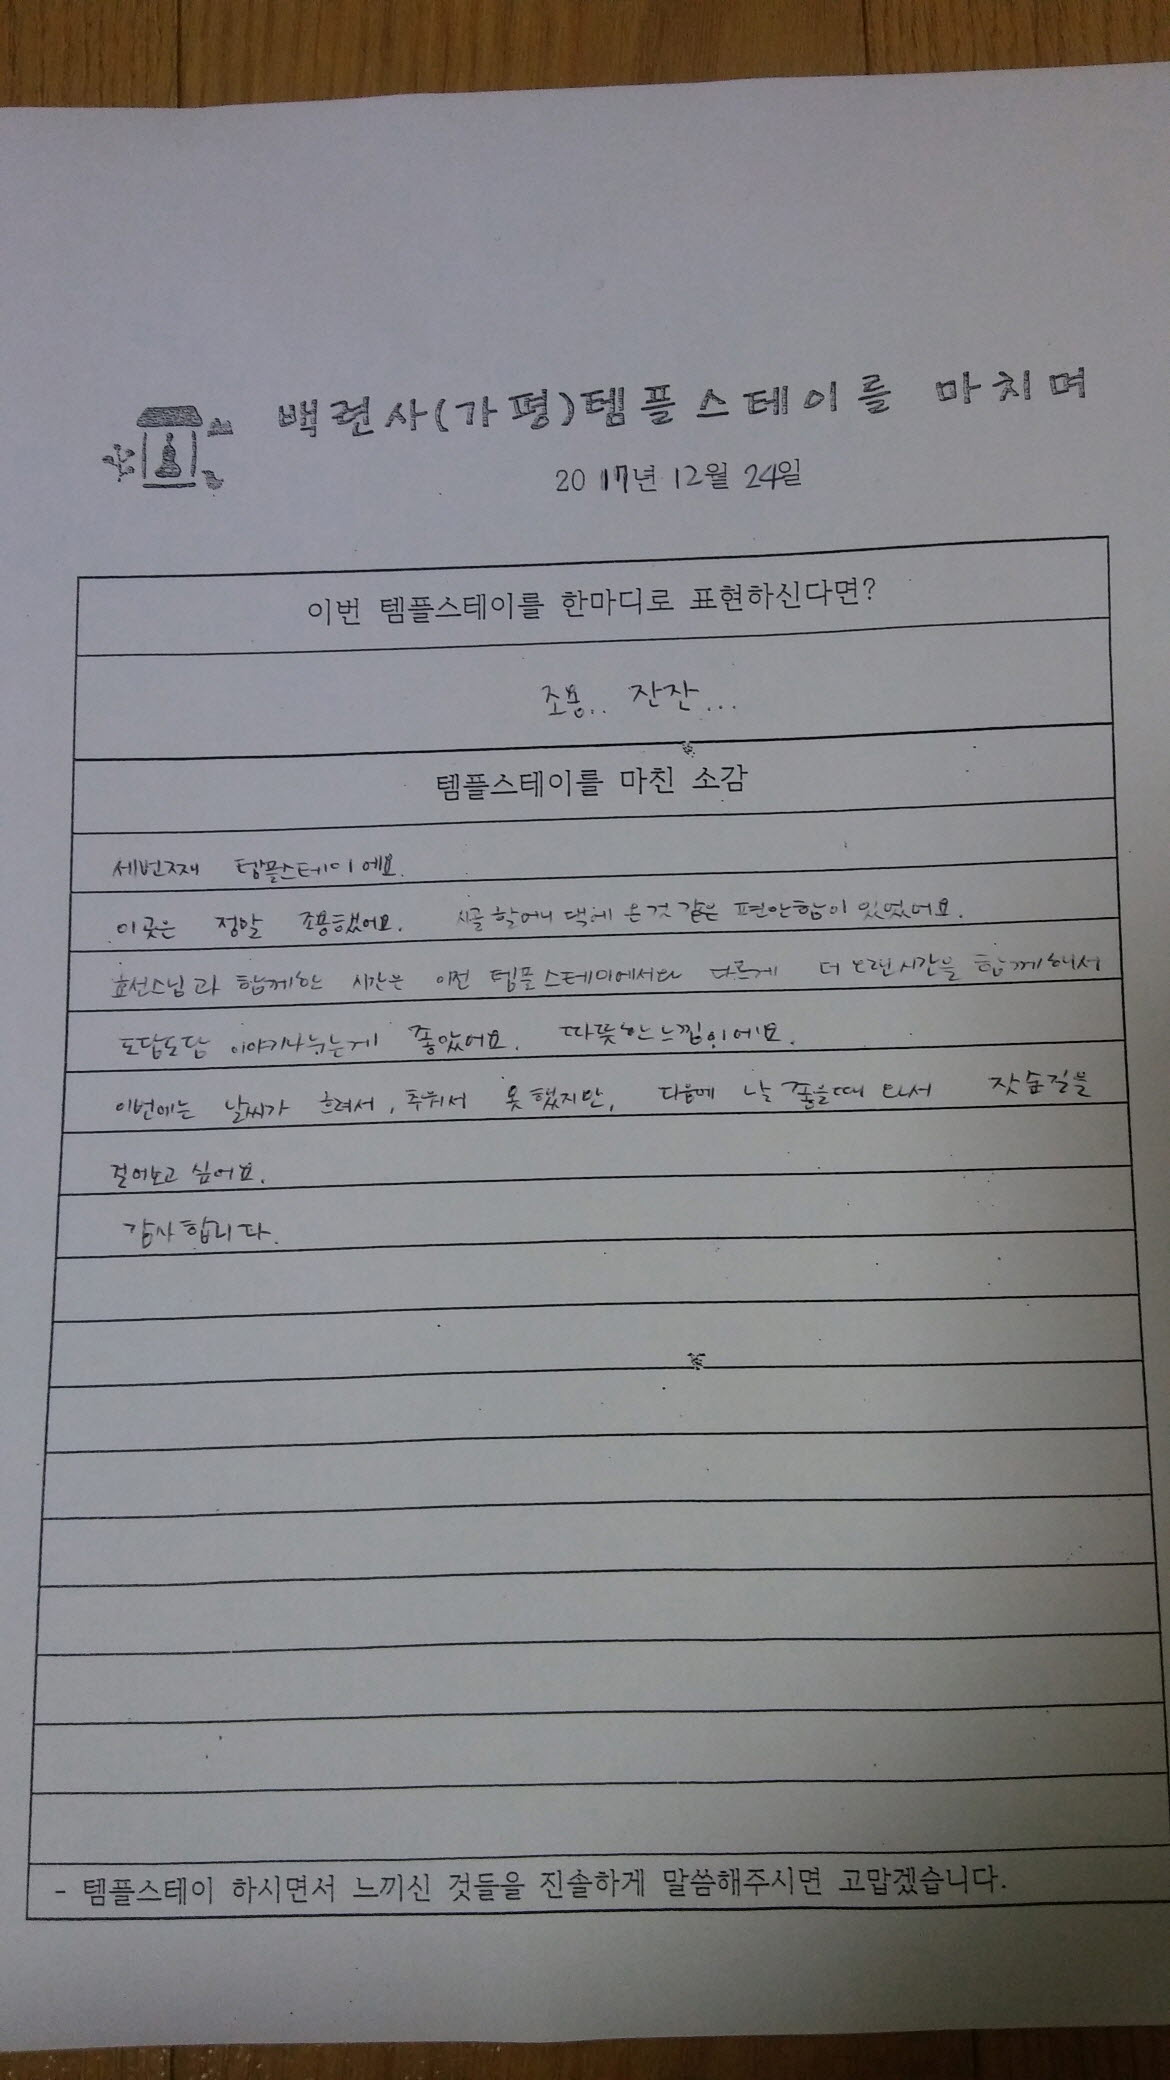 백련사(가평)템플스테이를 마치며
2017년 12월 24일
이번 템플스테이를 한마디로 표현하신다면?
조용.. 잔잔...
템플스테이를 마친 소감
세번째 템플스테이에요.
이곳은 정말 조용했어요. 시골 할머니 댁에 온것 같은 편안함이 있었어요.
효선스님과 함께한 시간은 이전 템플스테이에서와 다르게 더 오랜시간을 함께해서
도담도담 이야기나누는게 좋았어요. 따뜻한느낌이에요.
이번에는 날씨가 흐려서, 추워서 못했지만, 다음에 날 좋을때 와서 잣숲길을
걸어보고 싶어요.
감사합니다.
- 템플스테이 하시면서 느끼신 것들을 진솔하게 말씀해주시면 고맙겠습니다.